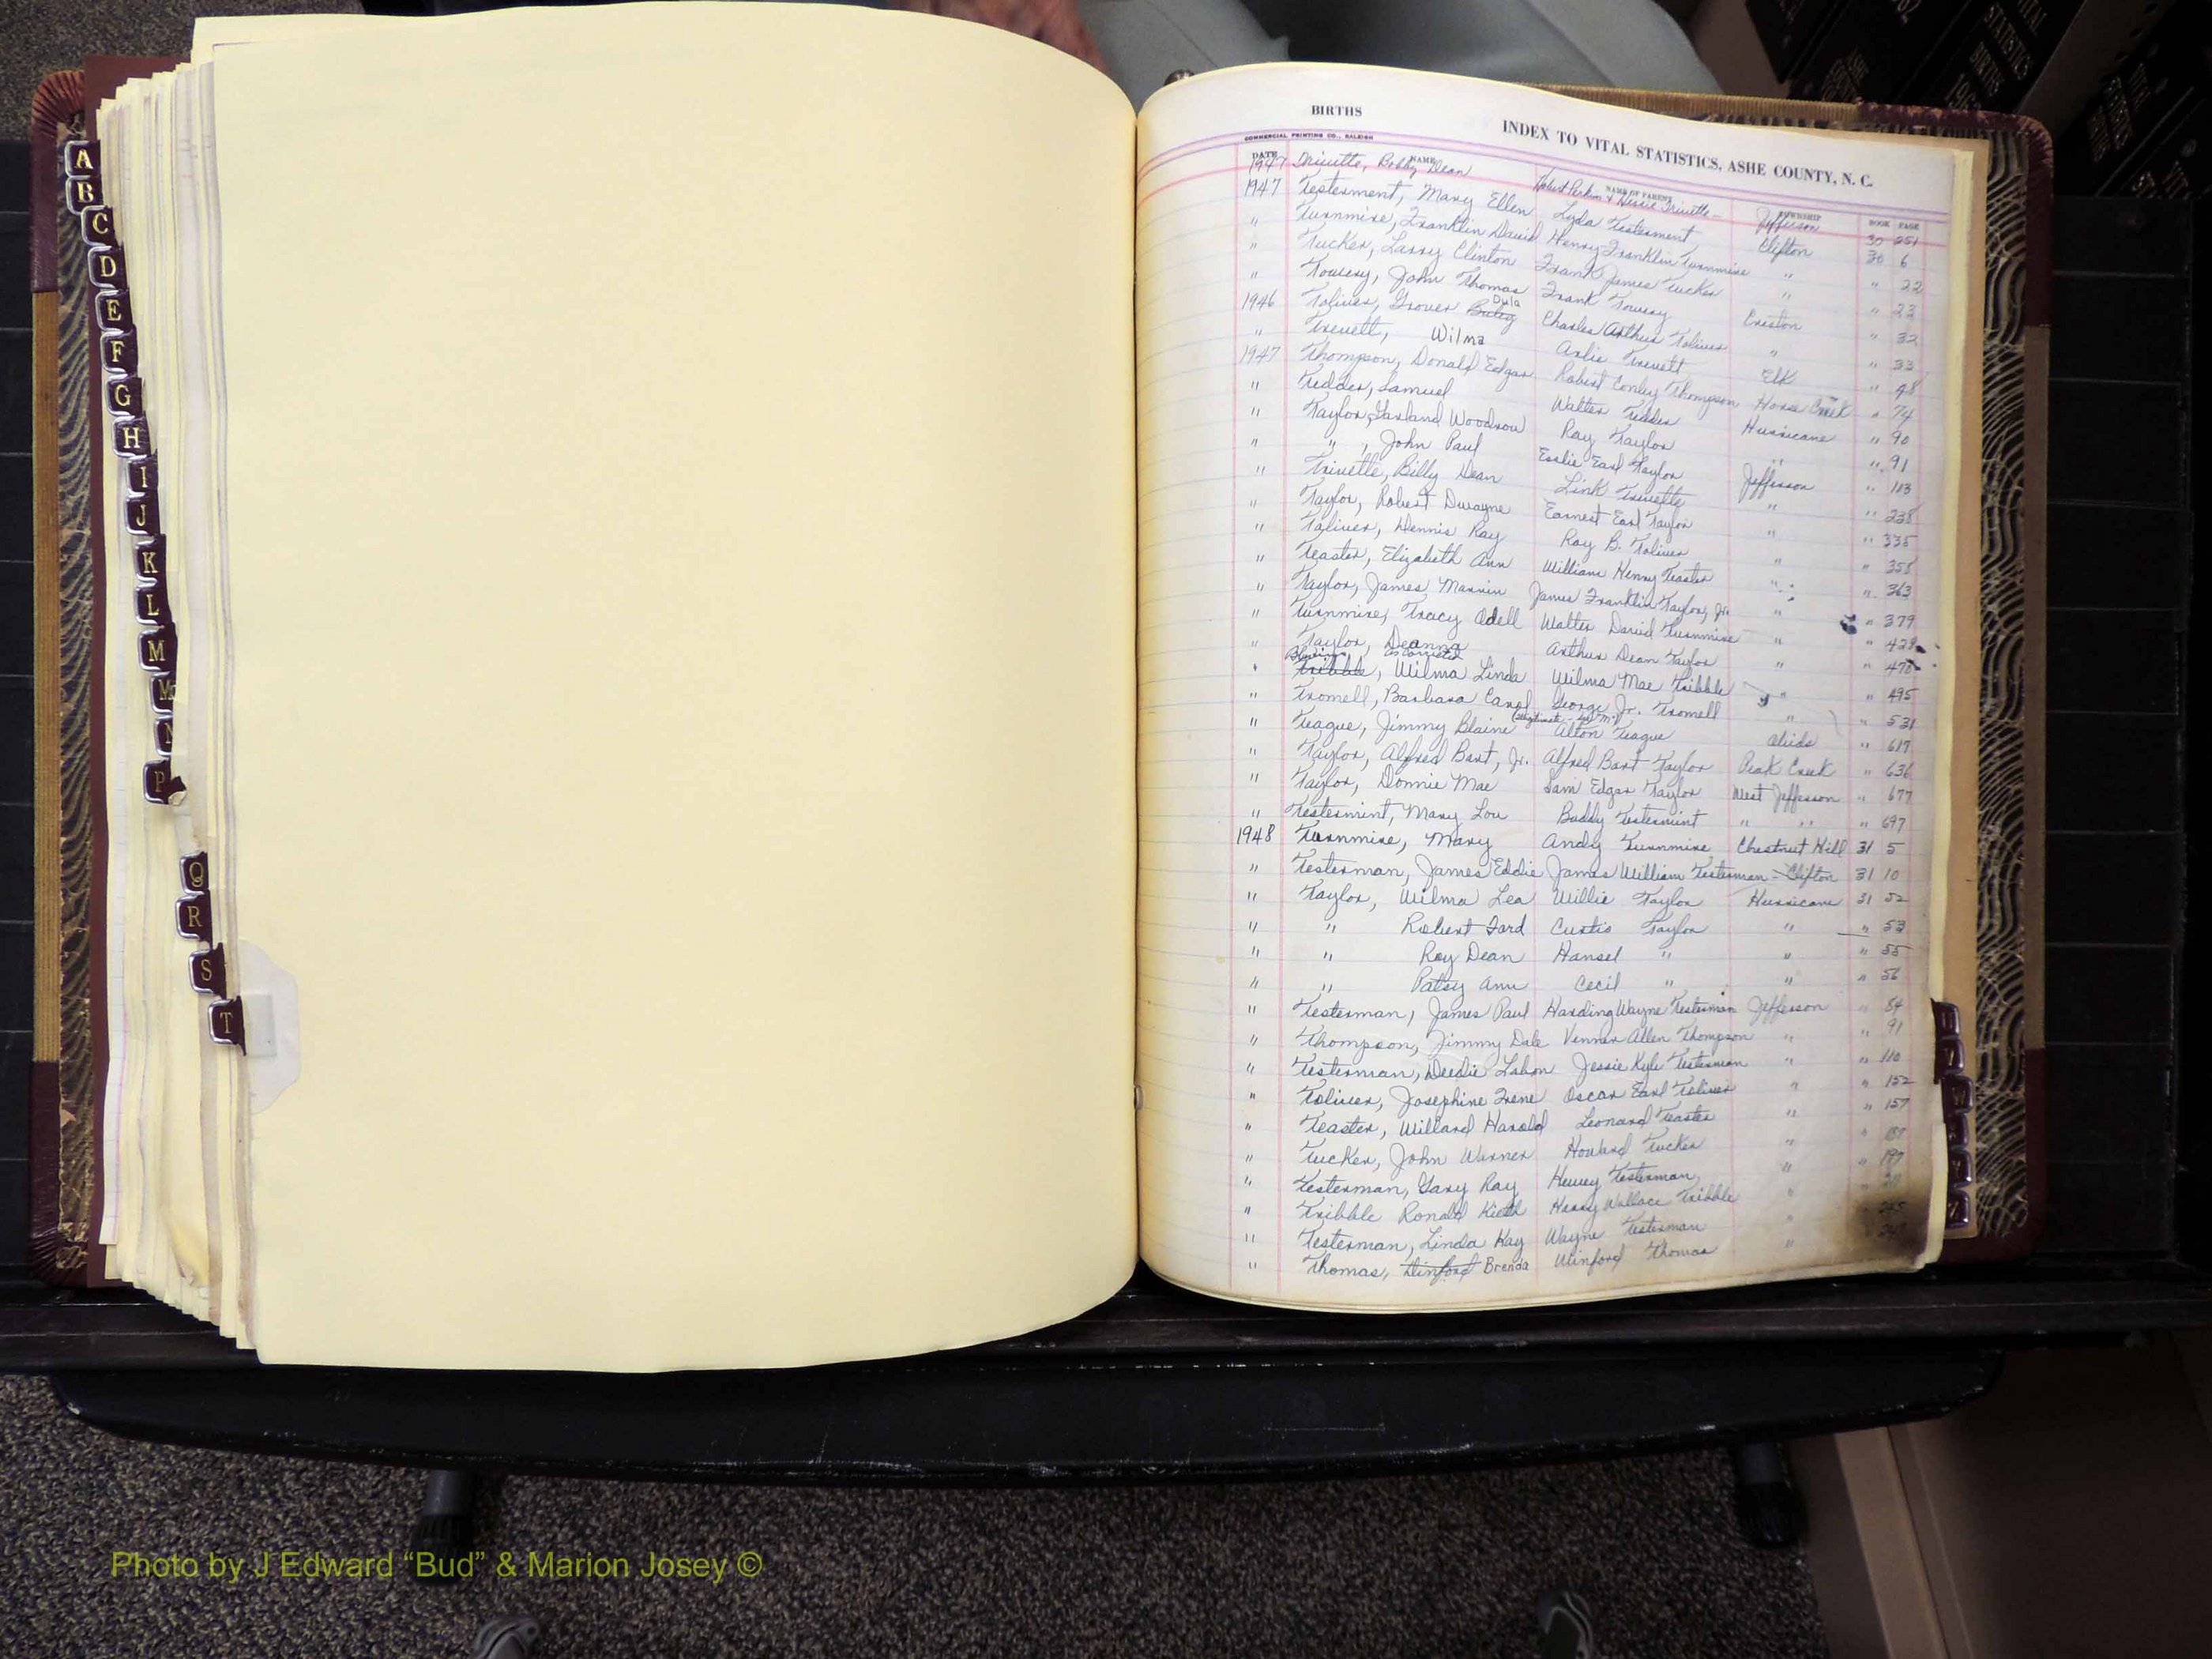 A
B
C
D
E
F
G
H
I
J
K
L
M
Mc
N
P
Q
R
S
T
BIRTHS
INDEX TO VITAL STATISTICS, ASHE COUNTY, N. C.
COMMERCIAL PRINTING CO., RALEIGH
DATE NAME NAME OF PARENT TOWNSHIP BOOK PAGE
1947 Trivette, Bobby Dean Robert Perkin & Trivette Jefferson 30 251
1947 Testerment, Mary Ellen Lyda Testerment Clifton 30 6
" Turnmire, Franklin David Henry Franklin Turnmire " " 22
" Tucker, Larry Clinton Frank James Tucker " " 23
" Towery, John Thomas Frank Towery Creston " 32
1946 Toliver, Grover Dula Charles Arthur Toliver " " 33
" Trevett, Wilma Arlie Trevett Elk " 48
1947 Thompson, Donald Edgar Robert Conley Thompson Horse Creek " 74
" Tedder, Samuel Walter Tedder Hurricane " 90
" Taylor, Garland Woodrow Ray Taylor " " 91
" " , John Paul Earl Taylor Jefferson " 113
" Trivette, Billy Dean Link Trivette " " 238
" Taylor, Robert Dwayne Earnest Earl Taylor " " 335
" Toliver, Dennis Ray Ray B. Toliver " " 358
" Teaster, Elizabeth Ann William Henry Teaster " " 363
" Taylor, James Marvin James Franklin Taylor, Jr. " " 379
" Turnmire, Tracy Odell Walter David Turnmire " " 428
" Taylor, Deanna Arthur Dean Taylor " " 478
Blevins as corrected
" Tribble, Wilma Linda Wilma Mae Tribble " " 495
" Tromell, Barbara Carol George Jr. Tromell " " 531
" Teague, Jimmy Blaine Alton Teague Obids " 617
" Taylor, Alfred Bart, Jr. Alfred Bart Taylor Peak Creek " 636
" Taylor, Donnie Mae Sam Edgar Taylor West Jefferson " 677
" Testermint, Mary Lou Buddy Testermint " " " 697
1948 Turnmire, Mary Andy Turnmire Chestnut Hill 31 5
" Testerman, James Eddie James William Testerman - Clifton 31 10
" Taylor, Wilma Lea Willie Taylor Hurricane 31 52
" " Robert Ford Curtis Taylor " " 53
" " Roy Dean Hansel " " " 55
" " Patsy Ann Cecil " " " 56
" Testerman, James Paul Harding Wayne Testerman Jefferson " 84
" Thompson, Jimmy Dale Venner Allen Thompson " " 91
" Testerman, Deedie Labon Jessie Kyle Testerman " " 110
" Toliver, Josephine Irene Oscar Earl Toliver " " 152
" Teaster, Willard Harold Leonard Teaster " " 157
" Tucker, John Warner Howard Tucker " "
" Testerman, Gary Ray Hewey Testerman " " 197
" Tribble Ronald Kieth Harry Wallace Tribble "
" Testerman, Linda Kay Wayne Testerman "
" Thomas, Winford Brenda Winford Thomas "
W
Photo by J Edward “Bud” & Marion Josey ©